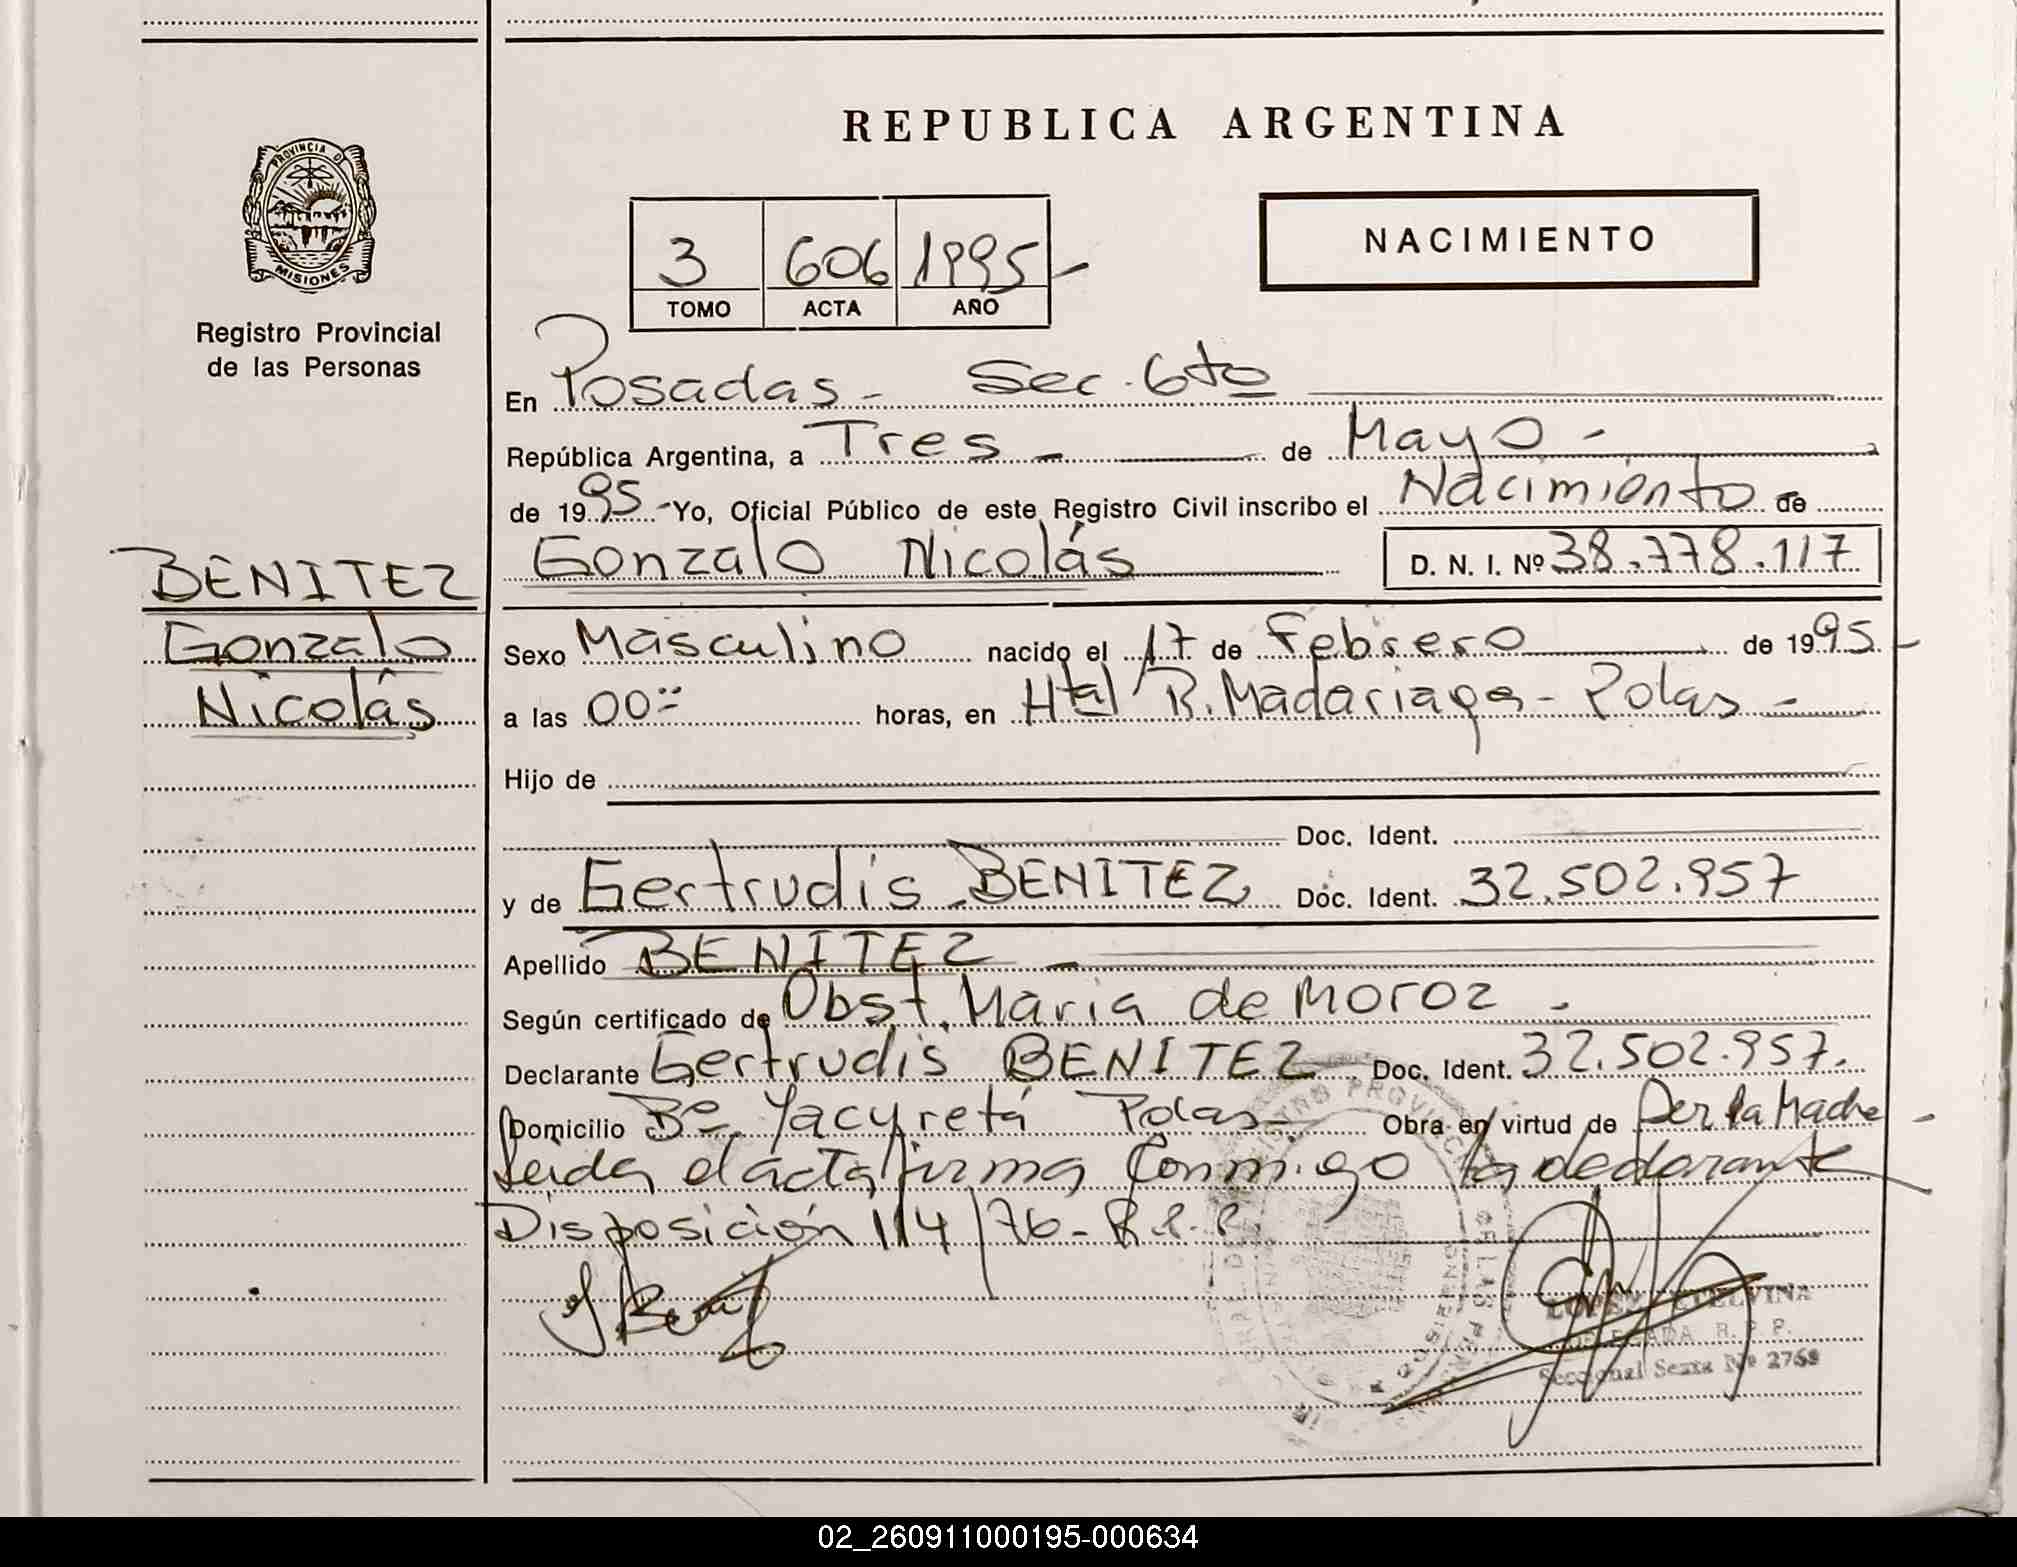 REPUBLICA ARGENTINA
PROVINCIA DE
MISIONES
Registro Provincial
de las Personas
3 606 1995-
TOMO ACTA AÑO
NACIMIENTO
En Posadas - Sec. 6to
República Argentina, a Tres - de Mayo -
de 1995 - Yo, Oficial Público de este Registro Civil inscribo el Nacimiento de
BENITEZ
Gonzalo
Nicolás
Gonzalo Nicolás D. N. I. Nº 38.778.117
Sexo Masculino nacido el 17 de Febrero de 1995-
a las 00:- horas, en Htal R. Madariaga - Pdas -
Hijo de
Doc. Ident.
y de Gertrudis BENITEZ Doc. Ident. 32.502.957
Apellido BENITEZ -
Según certificado de Obst. Maria de Moroz -
Declarante Gertrudis BENITEZ Doc. Ident. 32.502.957.
Domicilio Bº Yacyretá Pdas - Obra en virtud de Ser la Madre -
Leida el acta firma conmigo la declarante
Disposición 114/76 - R.P.P.
LOPEZ ETELVINA
DELEGADA R. P. P.
Seccional Sexta Nº 2769
02_260911000195-000634